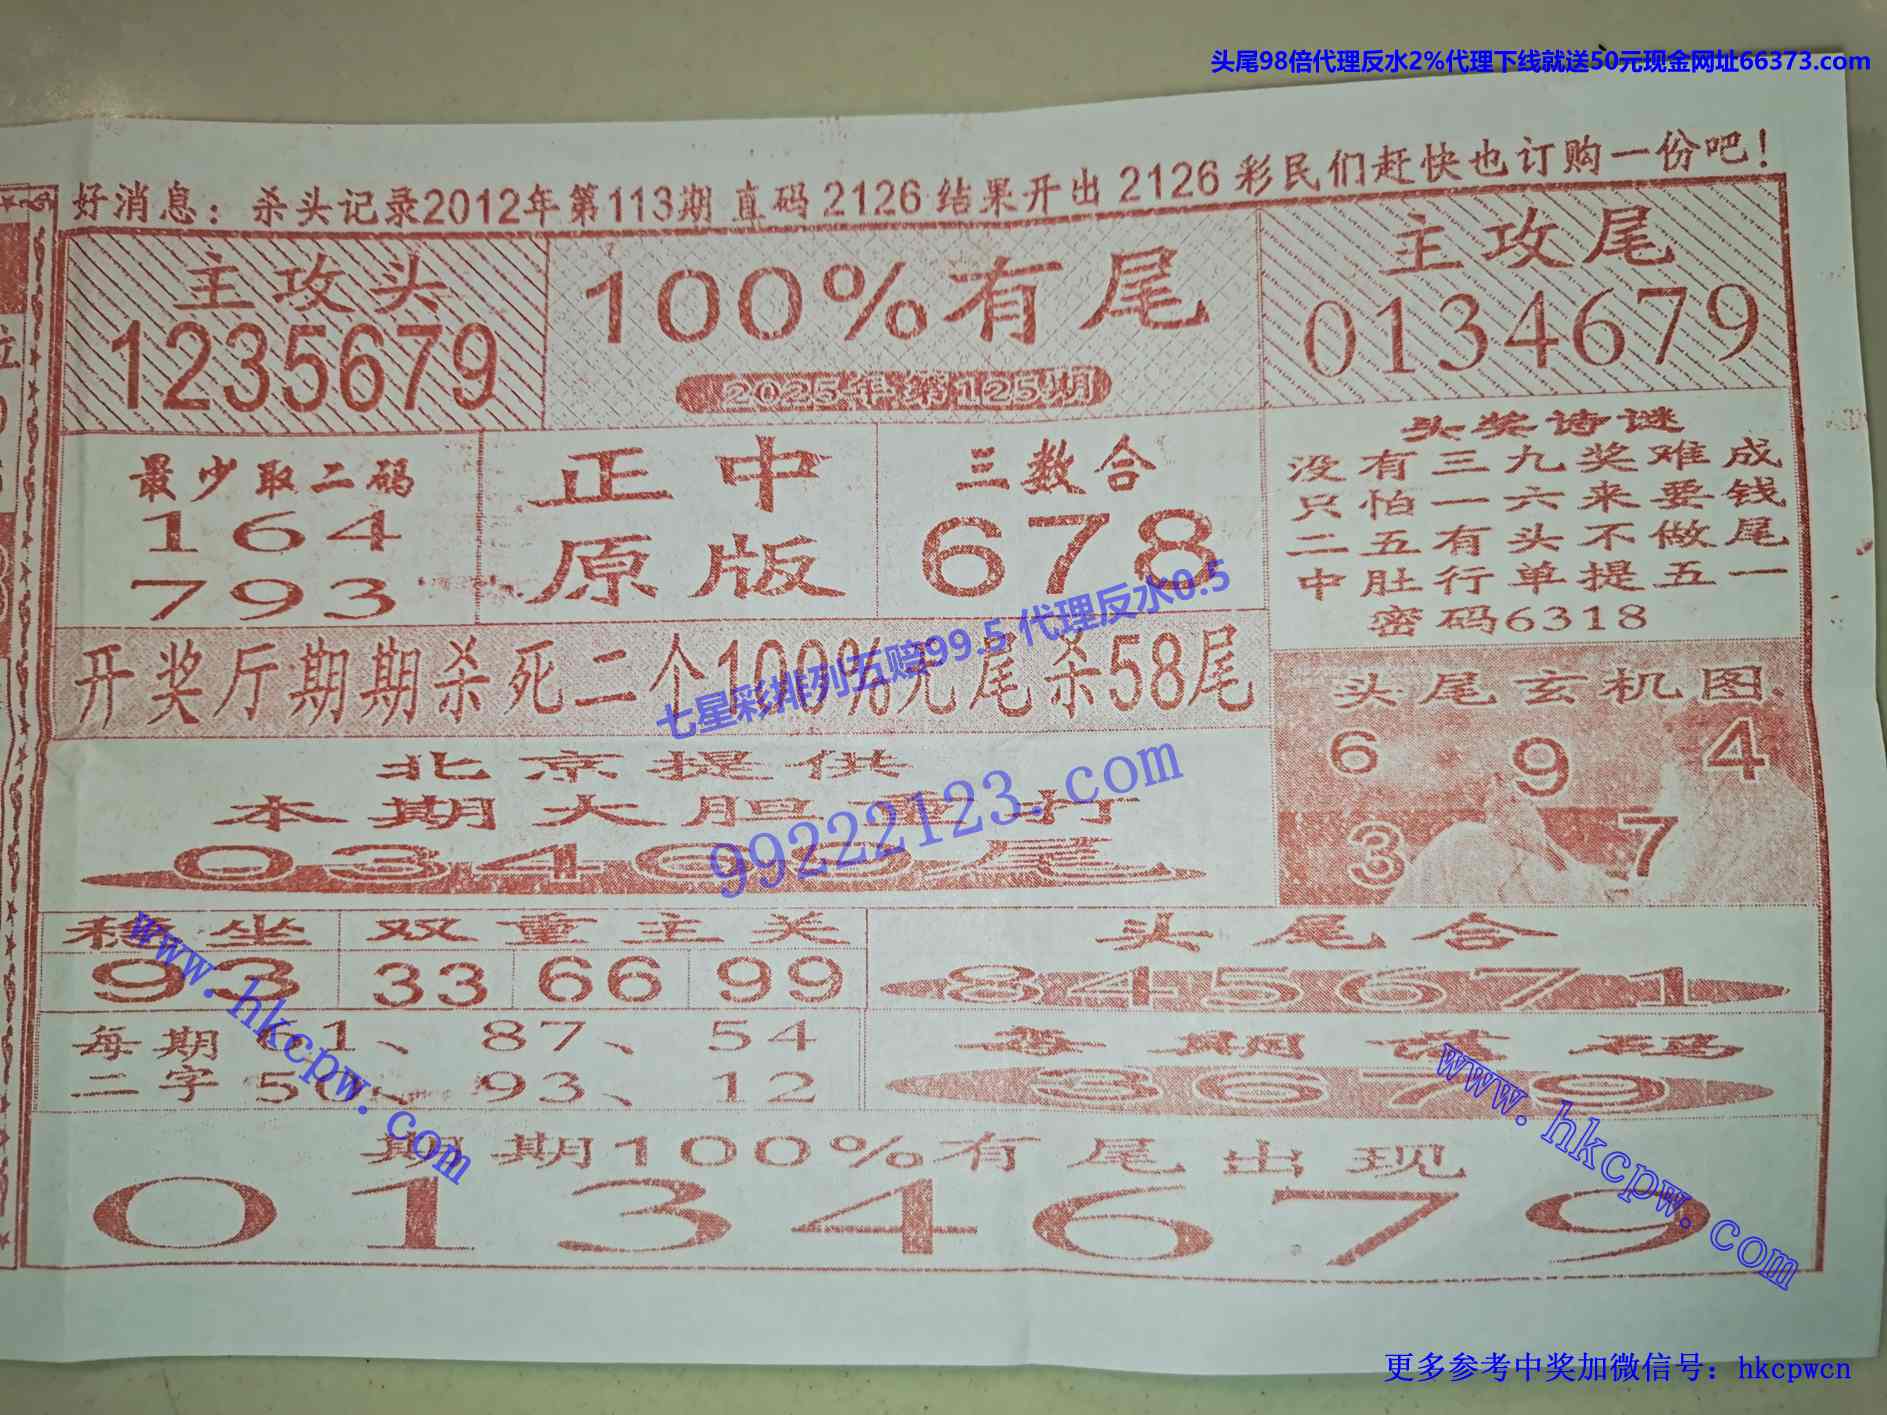 头尾98倍代理反水2%代理下线就送50元现金网址66373.com
好消息：杀头记录2012年第113期 直码 2126 结果开出 2126 彩民们赶快也订购一份吧！
主攻头
1235679
100%有尾
2025年第125期
主攻尾
0134679
最少取二码
164
793
正中
原版
三数合
678
头奖诗谜
没有三九奖难成
只怕一六来要钱
二五有头不做尾
中肚行单提五一
密码6318
开奖厅期期杀死二个100%无尾杀58尾
七星彩排列五赔99.5 代理反水0.5
头尾玄机图
6 9 4
3 7
北京提供
本期大胆重打
0346 尾
99222123.com
稳坐
93
双重主关
33 66 99
头尾合
845671
每期二字
61、 87、 54
50、 93、 12
每期 码
3679
www.hkcpw.com
www.hkcpw.com
期期100%有尾出现
0134679
更多参考中奖加微信号：hkcpwcn